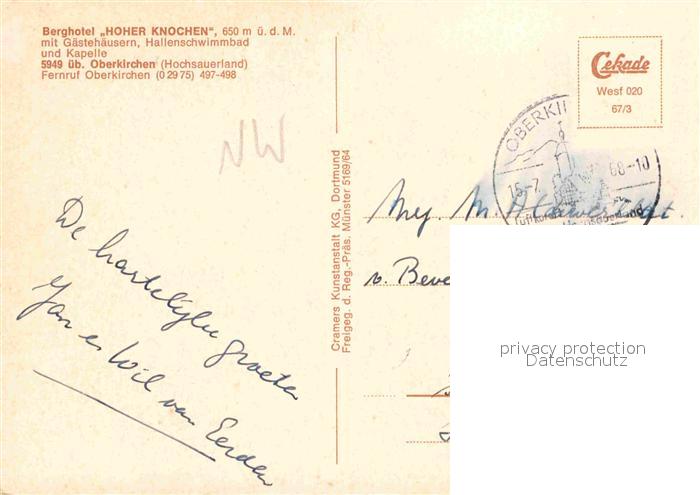 Berghotel „HOHER KNOCHEN“, 650 m ü. d. M.
mit Gästehäusern, Hallenschwimmbad
und Kapelle
5949 üb. Oberkirchen (Hochsauerland)
Fernruf Oberkirchen (0 29 75) 497-498
Cekade
Westf 020
67/3
NW
OBERKI
15.-7. 68-10
Luftkurort
Hochsauerland
Cramers Kunstanstalt KG, Dortmund
Freigeg. d. Reg.-Präs. Münster 5169/64
Mej M.
v. Beve
De hartelijke groeten
Jan en Wil van Eerden
privacy protection
Datenschutz